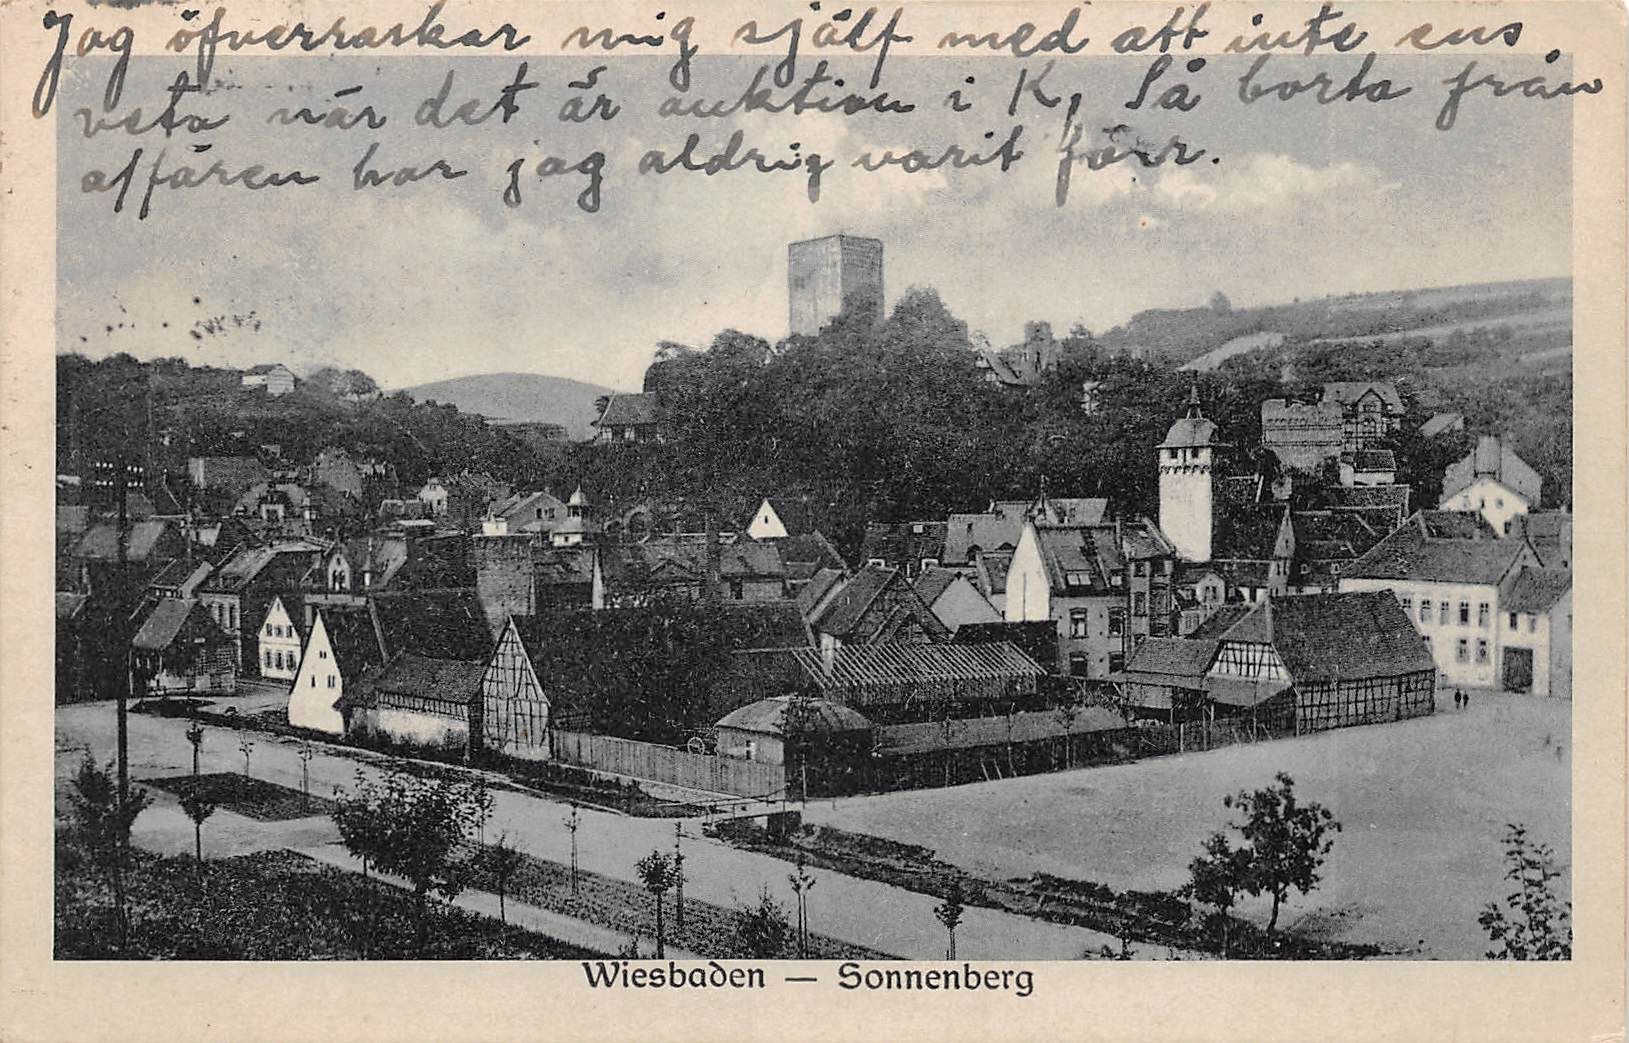 Jag öfverraskar mig själf med att inte ens
veta när det är auktion i K, Så borta från
affären har jag aldrig varit förr.
Wiesbaden — Sonnenberg